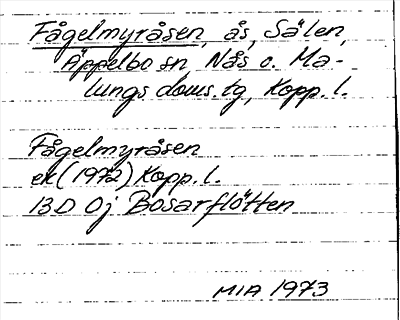 Fågelmyråsen, ås, Sälen,
Äppelbo sn Nås o. Ma-
lungs doms. tg, Kopp. l.
Fågelmyråsen
ek (1972) Kopp. l.
13D 0j Bosarflötten
MIA 1973